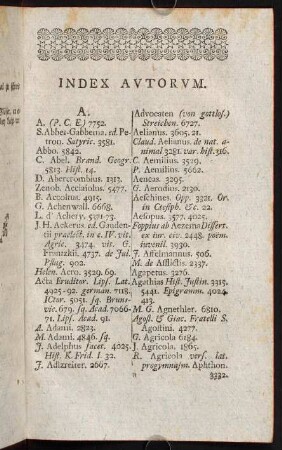 INDEX AVTORVM.
A.
A. (P. C. E.) 7752.
S. Abbes-Gabbema, ed. Pe-
tron. Satyric. 3581.
Abbo. 5842.
C. Abel. Brand. Geogr.
5813. Hist. 14.
D. Abercrombius. 1313.
Zenob. Acciaiolus. 5477.
B. Accoltus. 4915.
G. Achenwall. 6668.
L. d' Achery. 5171-73.
J. H. Ackerus. ed. Gauden-
tii praelect. in vit.
Agric. 3474. vit. G.
Frantzkii. 4737. de Jul.
Pflug. 902.
Helen. Acro. 3529. 69.
Acta Eruditor. Lips. Lat.
4925-92. german. 7118.
ICtor. 5051. sq. Bruns-
vic. 679. sq. Acad. 7066-
71. Lips. Acad. 91.
A. Adami. 2823.
M. Adami. 4846. sq.
J. Adelphus facet. 4025.
Hist. K. Frid. I. 32.
J. Adlzreiter. 2667.
Advocaten (von gottlos.)
Streichen. 6727.
Aelianus. 3605. 21.
Claud. Aelianus. de nat. a-
nimal 3281. var. hist. 316.
C. Aemilius. 3529.
P. Aemilius. 5662.
Aeneas. 3295.
G. Aerodius. 2130.
Aeschines. Opp. 3321. Or.
in Ctesiph. &c. 22.
Aesopus. 3577. 4025.
Foppius ab Aezema Dissert.
ex iur. civ. 2448. poem.
iuvenil. 3930.
J. Affelmannus. 506.
M. de Afflictis. 2337.
Agapetus. 3276.
Agathias Hist. Justin. 3315.
5441. Epigramm. 4024.
413.
M. G. Agnethler. 6810.
Agost. & Giac. Fratelli S.
Agostini. 4277.
G. Agricola 6184.
J. Agricola. 1865.
R. Agricola vers. lat.
progymnasm. Aphthon.
3332.